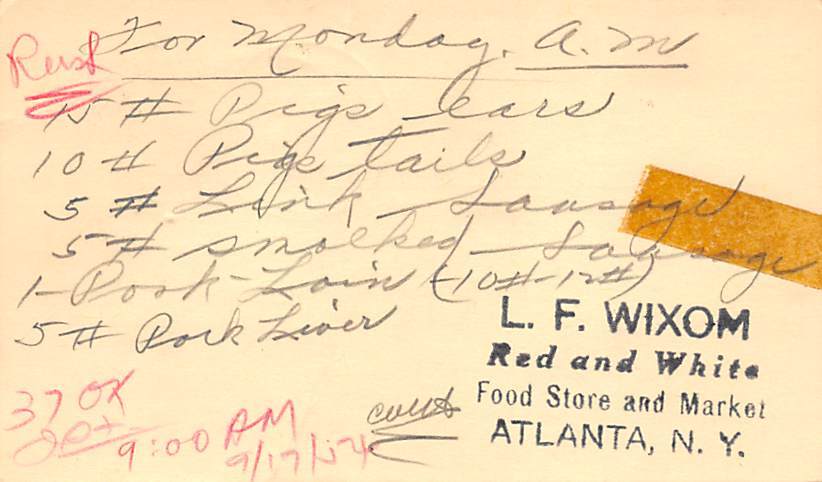 For Monday. A.M
Rush
15 # Pigs ears
10 # Pigs tails
5 # Link Sausage
5 # smolked Sausage
1- Pork-Loin (10#-12#)
5 # Pork Liver
L. F. WIXOM
Red and White
Food Store and Market
ATLANTA, N. Y.
37 OK
9:00 AM
9/17/54